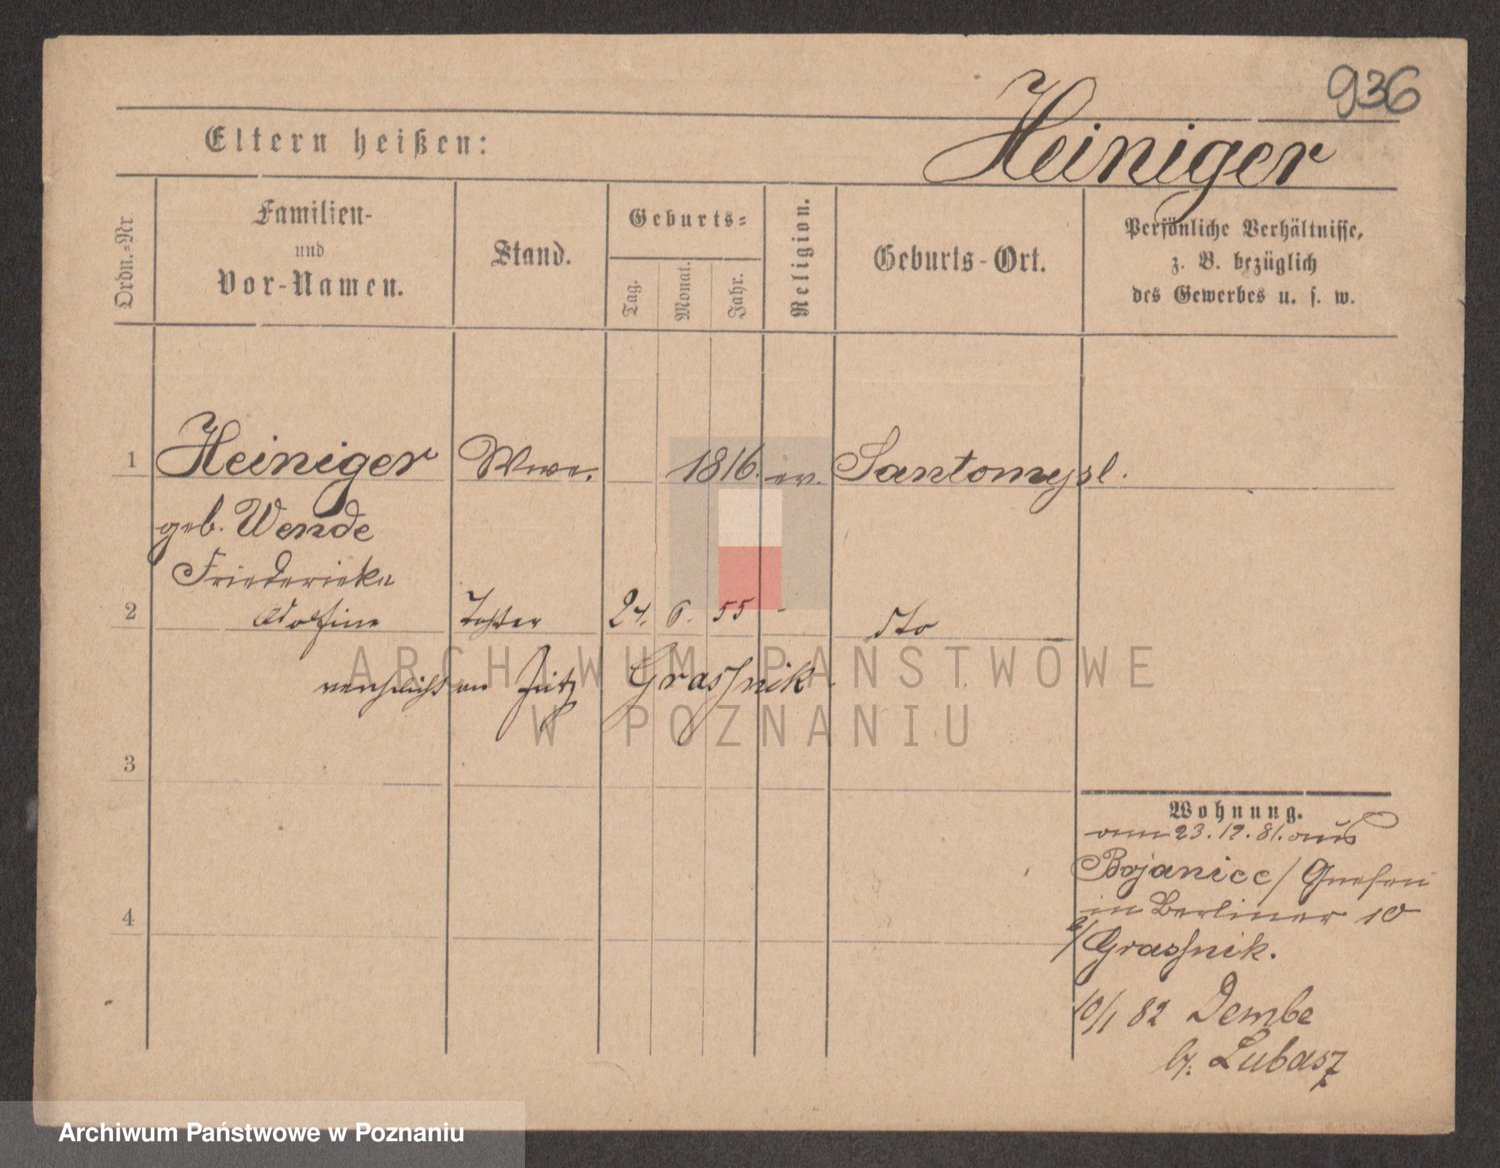 936
Eltern heißen:
Heiniger
Ordn.=Nr
Familien-
und
Vor-Namen.
Stand.
Geburts=
Tag.
Monat.
Jahr.
Religion.
Geburts-Ort.
Persönliche Verhältnisse,
z. B. bezüglich
des Gewerbes u. s. w.
1 Heiniger Wwe. 1816. ev. Santomysl.
geb. Wende
Friederieke
2 Adolfine 6. 55 - dto
Graßnik.
ARCHIWUM PAŃSTWOWE
W POZNANIU
3
4
Wohnung.
23.12.81. aus
Bojanice / Gnesen
in Berliner 10
b/ Graßnik.
10/1 82 Dembe
b. Lubasz
Archiwum Państwowe w Poznaniu